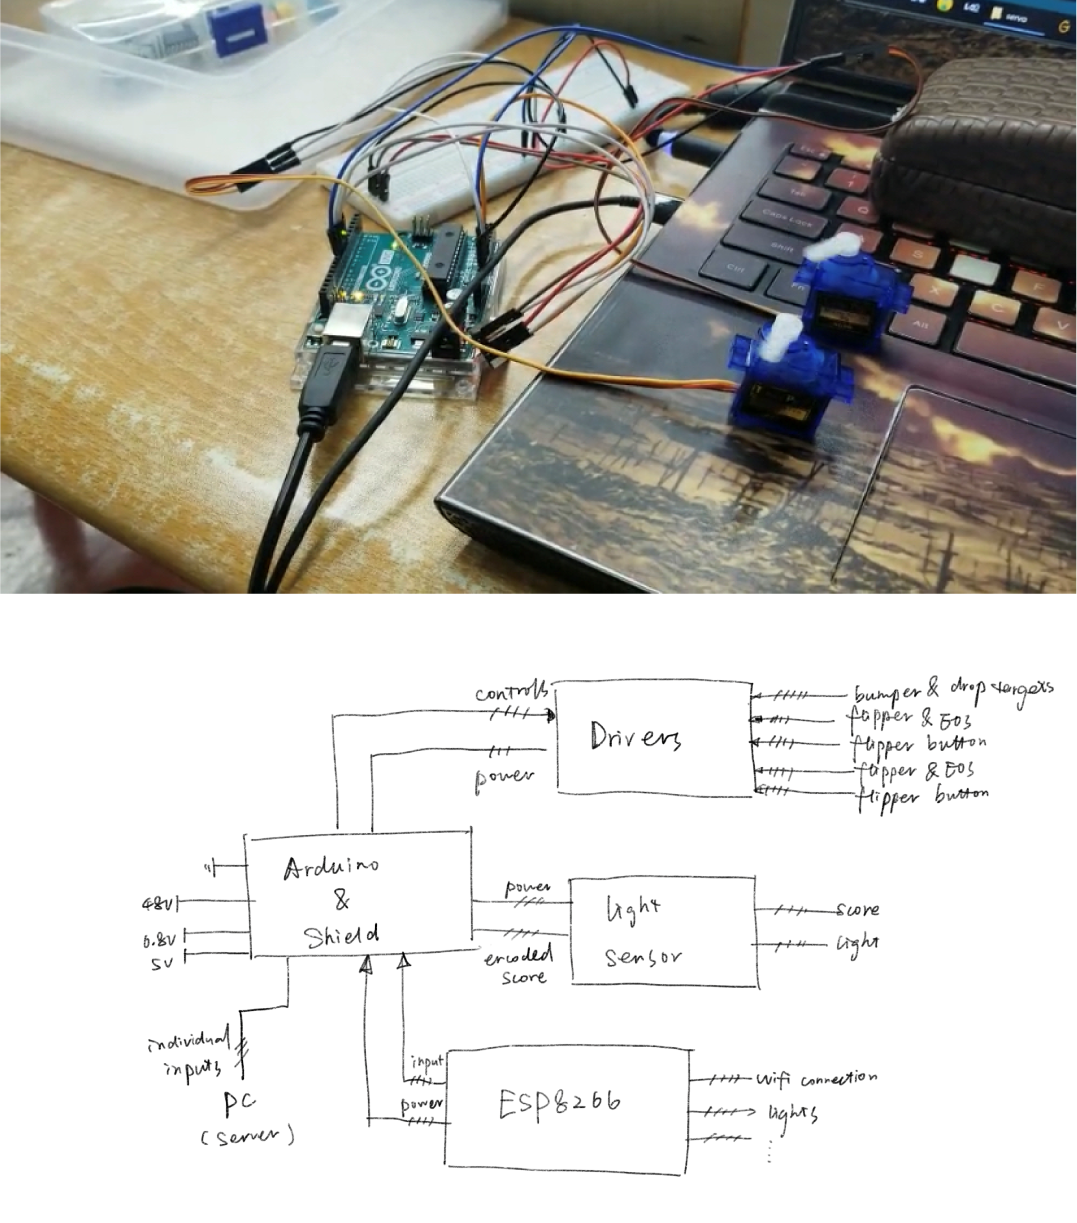 servo
Tab
Caps Lock
Shift
Ctrl
Fn
Alt
Q
S
F
X
C
V
controlls
power
Drivers
bumper & drop targets
flapper & EOS
flipper button
flapper & EOS
flipper button
Arduino
&
Shield
48V
6.8V
5V
power
encoded
score
light
sensor
score
light
individual
inputs
PC
(server)
input
power
ESP8266
wifi connection
lights